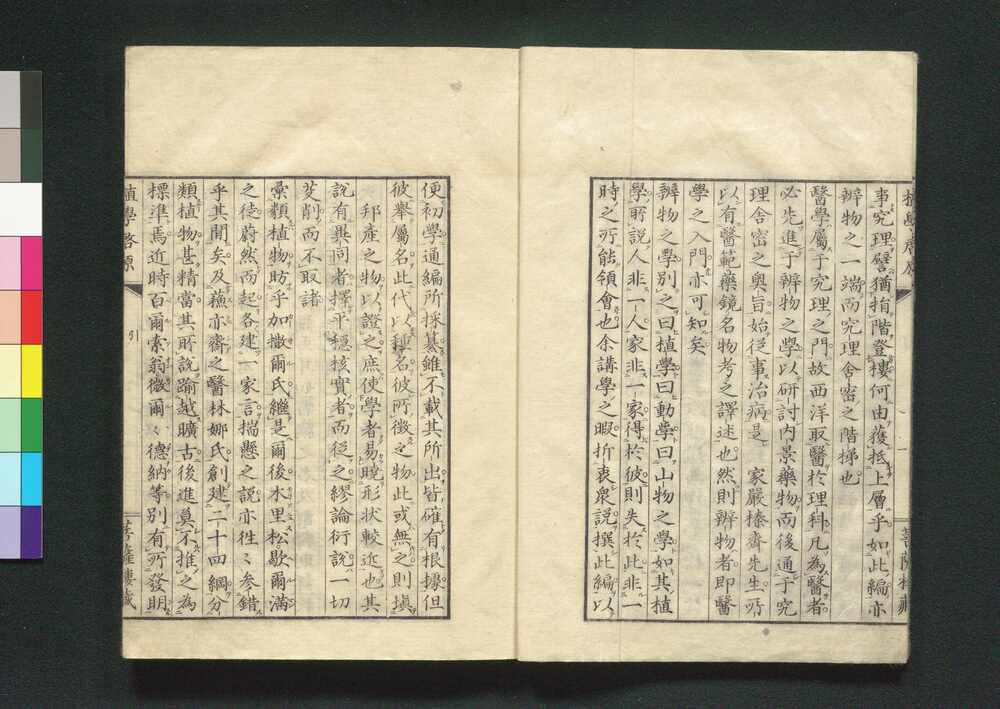 事究理譬猶指階登樓何由獲抵上層乎如此編亦
辨物之一端而究理舍密之階梯也
醫學屬于究理之門故西洋取醫於理科凡為醫者
必先進于辨物之學以研討内景藥物而後通于究
理舍密之奧旨始從事治病是 家嚴榛齋先生所
以有醫範藥鏡名物考之譯述也然則辨物者即醫
學之入門亦可知矣
辨物之學別之曰植學曰動學曰山物之學如其植
學所說人非一人家非一家得於彼則失於此非一
時之所能領會也余講學之暇折衷衆説撰此編以
菩薩樓藏
便初學通編所採纂雖不載其所出皆確有根據但
彼舉屬名此代以種名彼所徴之物此或無之則填
邦產之物以證之庶使學者易曉形状較近也其
説有異同者擇平穩核實者而從之繆論衍説一切
芟削而不取諸
彙類植物昉乎加撒爾氏繼是爾後木里松歇爾滿
之徒蔚然而起各建一家言揣懸之説亦往〻參錯
乎其間矣及蘇亦齋之醫林娜氏創建二十四綱分
類植物甚精當其所説踰越曠古後進莫不推之為
標準焉近時百爾索翁微爾〻德納等別有所發明
植學啓原
引
菩薩樓藏